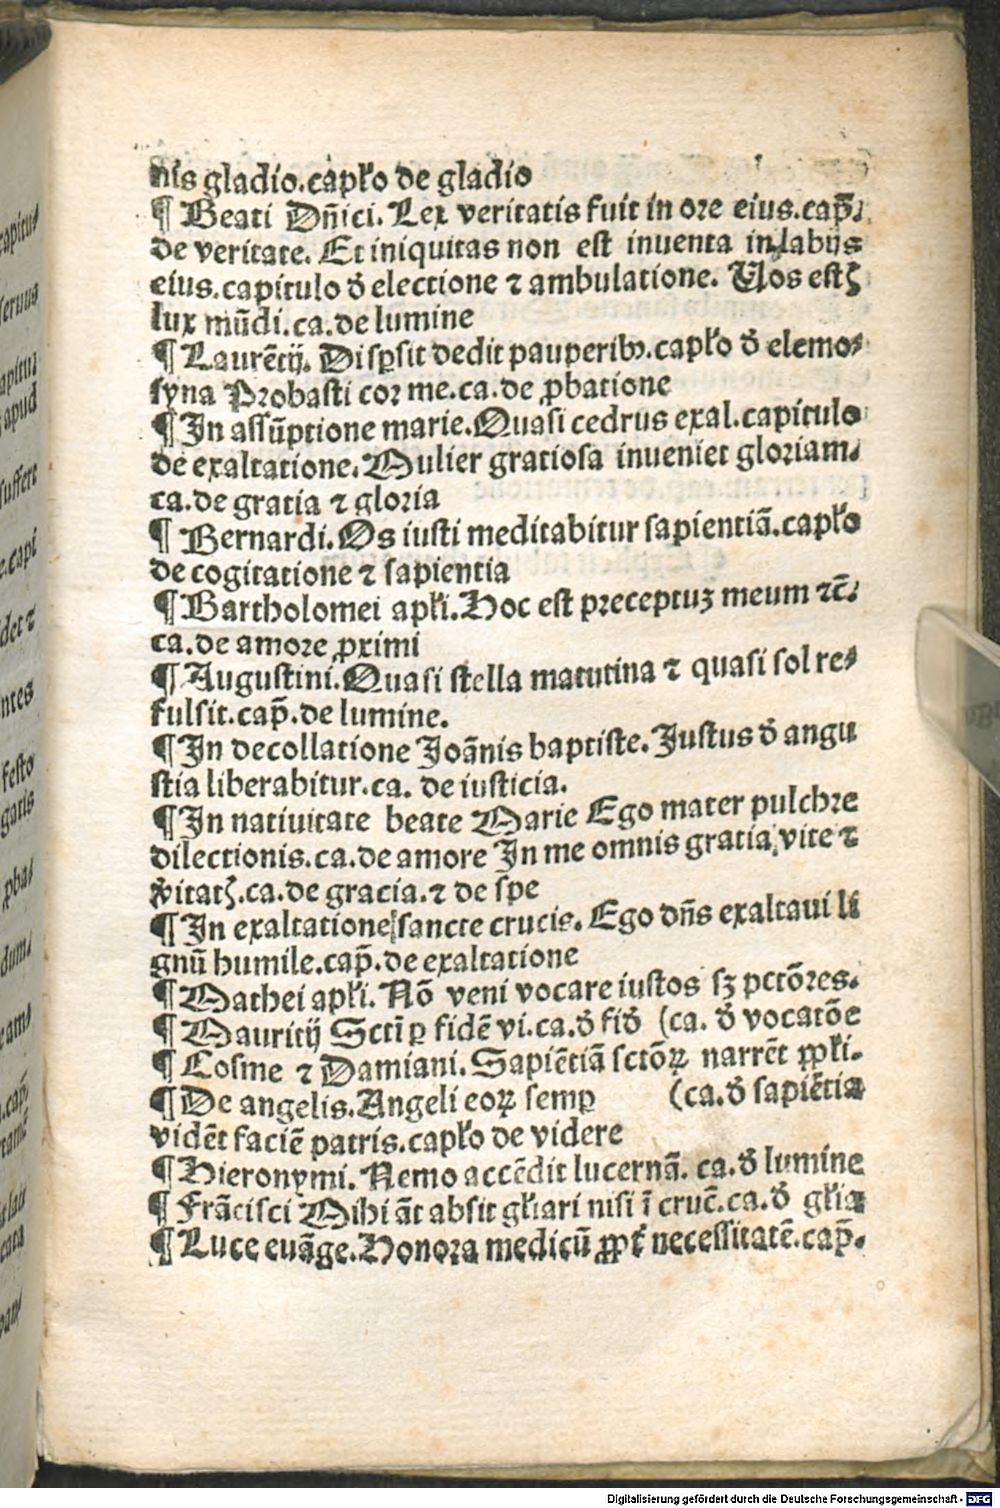 nis gladio.capło de gladio
¶ Beati Dñici. Lex veritatis fuit in ore eius.cap̄.
de veritate. Et iniquitas non est inuenta in labijs
eius.capitulo đ electione ⁊ ambulatione. Uos estꝭ
lux mūdi.ca.de lumine
¶ Laurētij. Disꝑsit dedit pauperibꝰ.capło đ elemo-
syna Probasti cor me.ca.de ꝓbatione
¶ In assūptione marie.Quasi cedrus exal.capitulo
de exaltatione.Mulier gratiosa inueniet gloriam.
ca.de gratia ⁊ gloria
¶ Bernardi.Os iusti meditabitur sapientiā.capło
de cogitatione ⁊ sapientia
¶ Bartholomei apłi.Hoc est preceptuꝫ meum ⁊c̄.
ca.de amore ꝓximi
¶ Augustini.Quasi stella matutina ⁊ quasi sol re-
fulsit.cap̄.de lumine.
¶ In decollatione Joānis baptiste.Justus đ angu
stia liberabitur.ca. de iusticia.
¶ In natiuitate beate Marie Ego mater pulchre
dilectionis.ca.de amore In me omnis gratia vite ⁊
v̓itatꝭ.ca.de gracia.⁊ de spe
¶ In exaltatione sancte crucis. Ego dñs exaltaui li
gnū humile.cap̄.de exaltatione
¶ Mathei apłi. Nō veni vocare iustos sꝫ pctōres.
¶ Mauritij Scti ꝑ fidē vi.ca.đ fiđ (ca. đ vocatōe
¶ Cosme ⁊ Damiani. Sapiētiā sctōꝝ narrēt ꝓpłi.
¶ De angelis.Angeli eoꝝ semꝑ (ca.đ sapiētia
vidēt faciē patris.capło de videre
¶ Hieronymi. Nemo accēdit lucernā. ca.đ lumine
¶ Frācisci Mihi āt absit głiari nisi ī cruc̄.ca.đ głia
¶ Luce euāge.Honora medicū ꝓpt̓ necessitatē.cap̄.
Digitalisierung gefördert durch die Deutsche Forschungsgemeinschaft - DFG